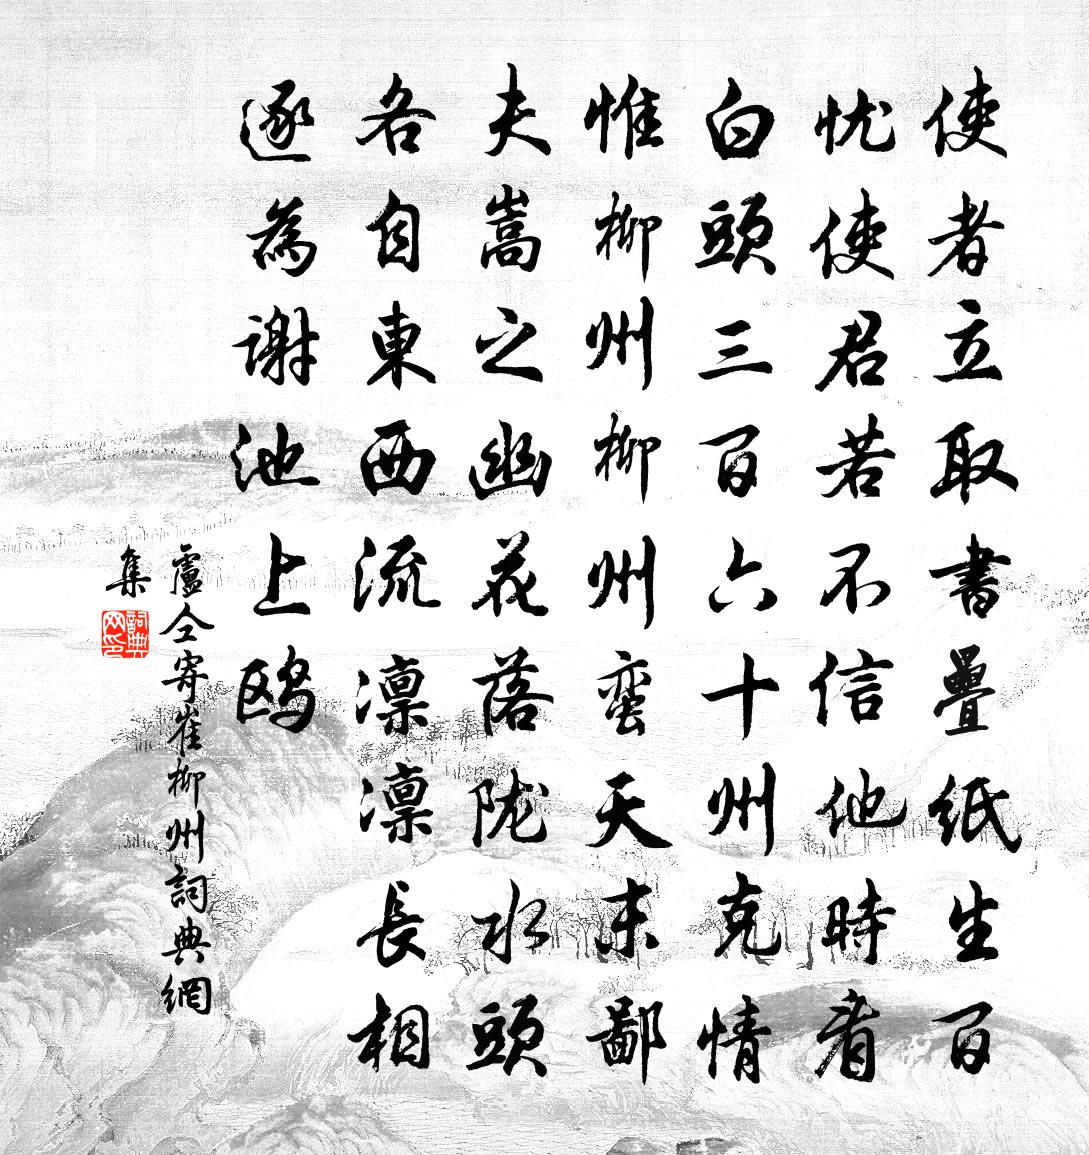 使者立取書疊紙生百
忧使君若不信他時看
白頭三百六十州克情
惟柳州柳州蛮天末鄙
夫嵩之幽花落陇水頭
各自東西流凛凛長相
逐為谢池上鸥
盧仝寄崔柳州詞典網
集
詞典网印